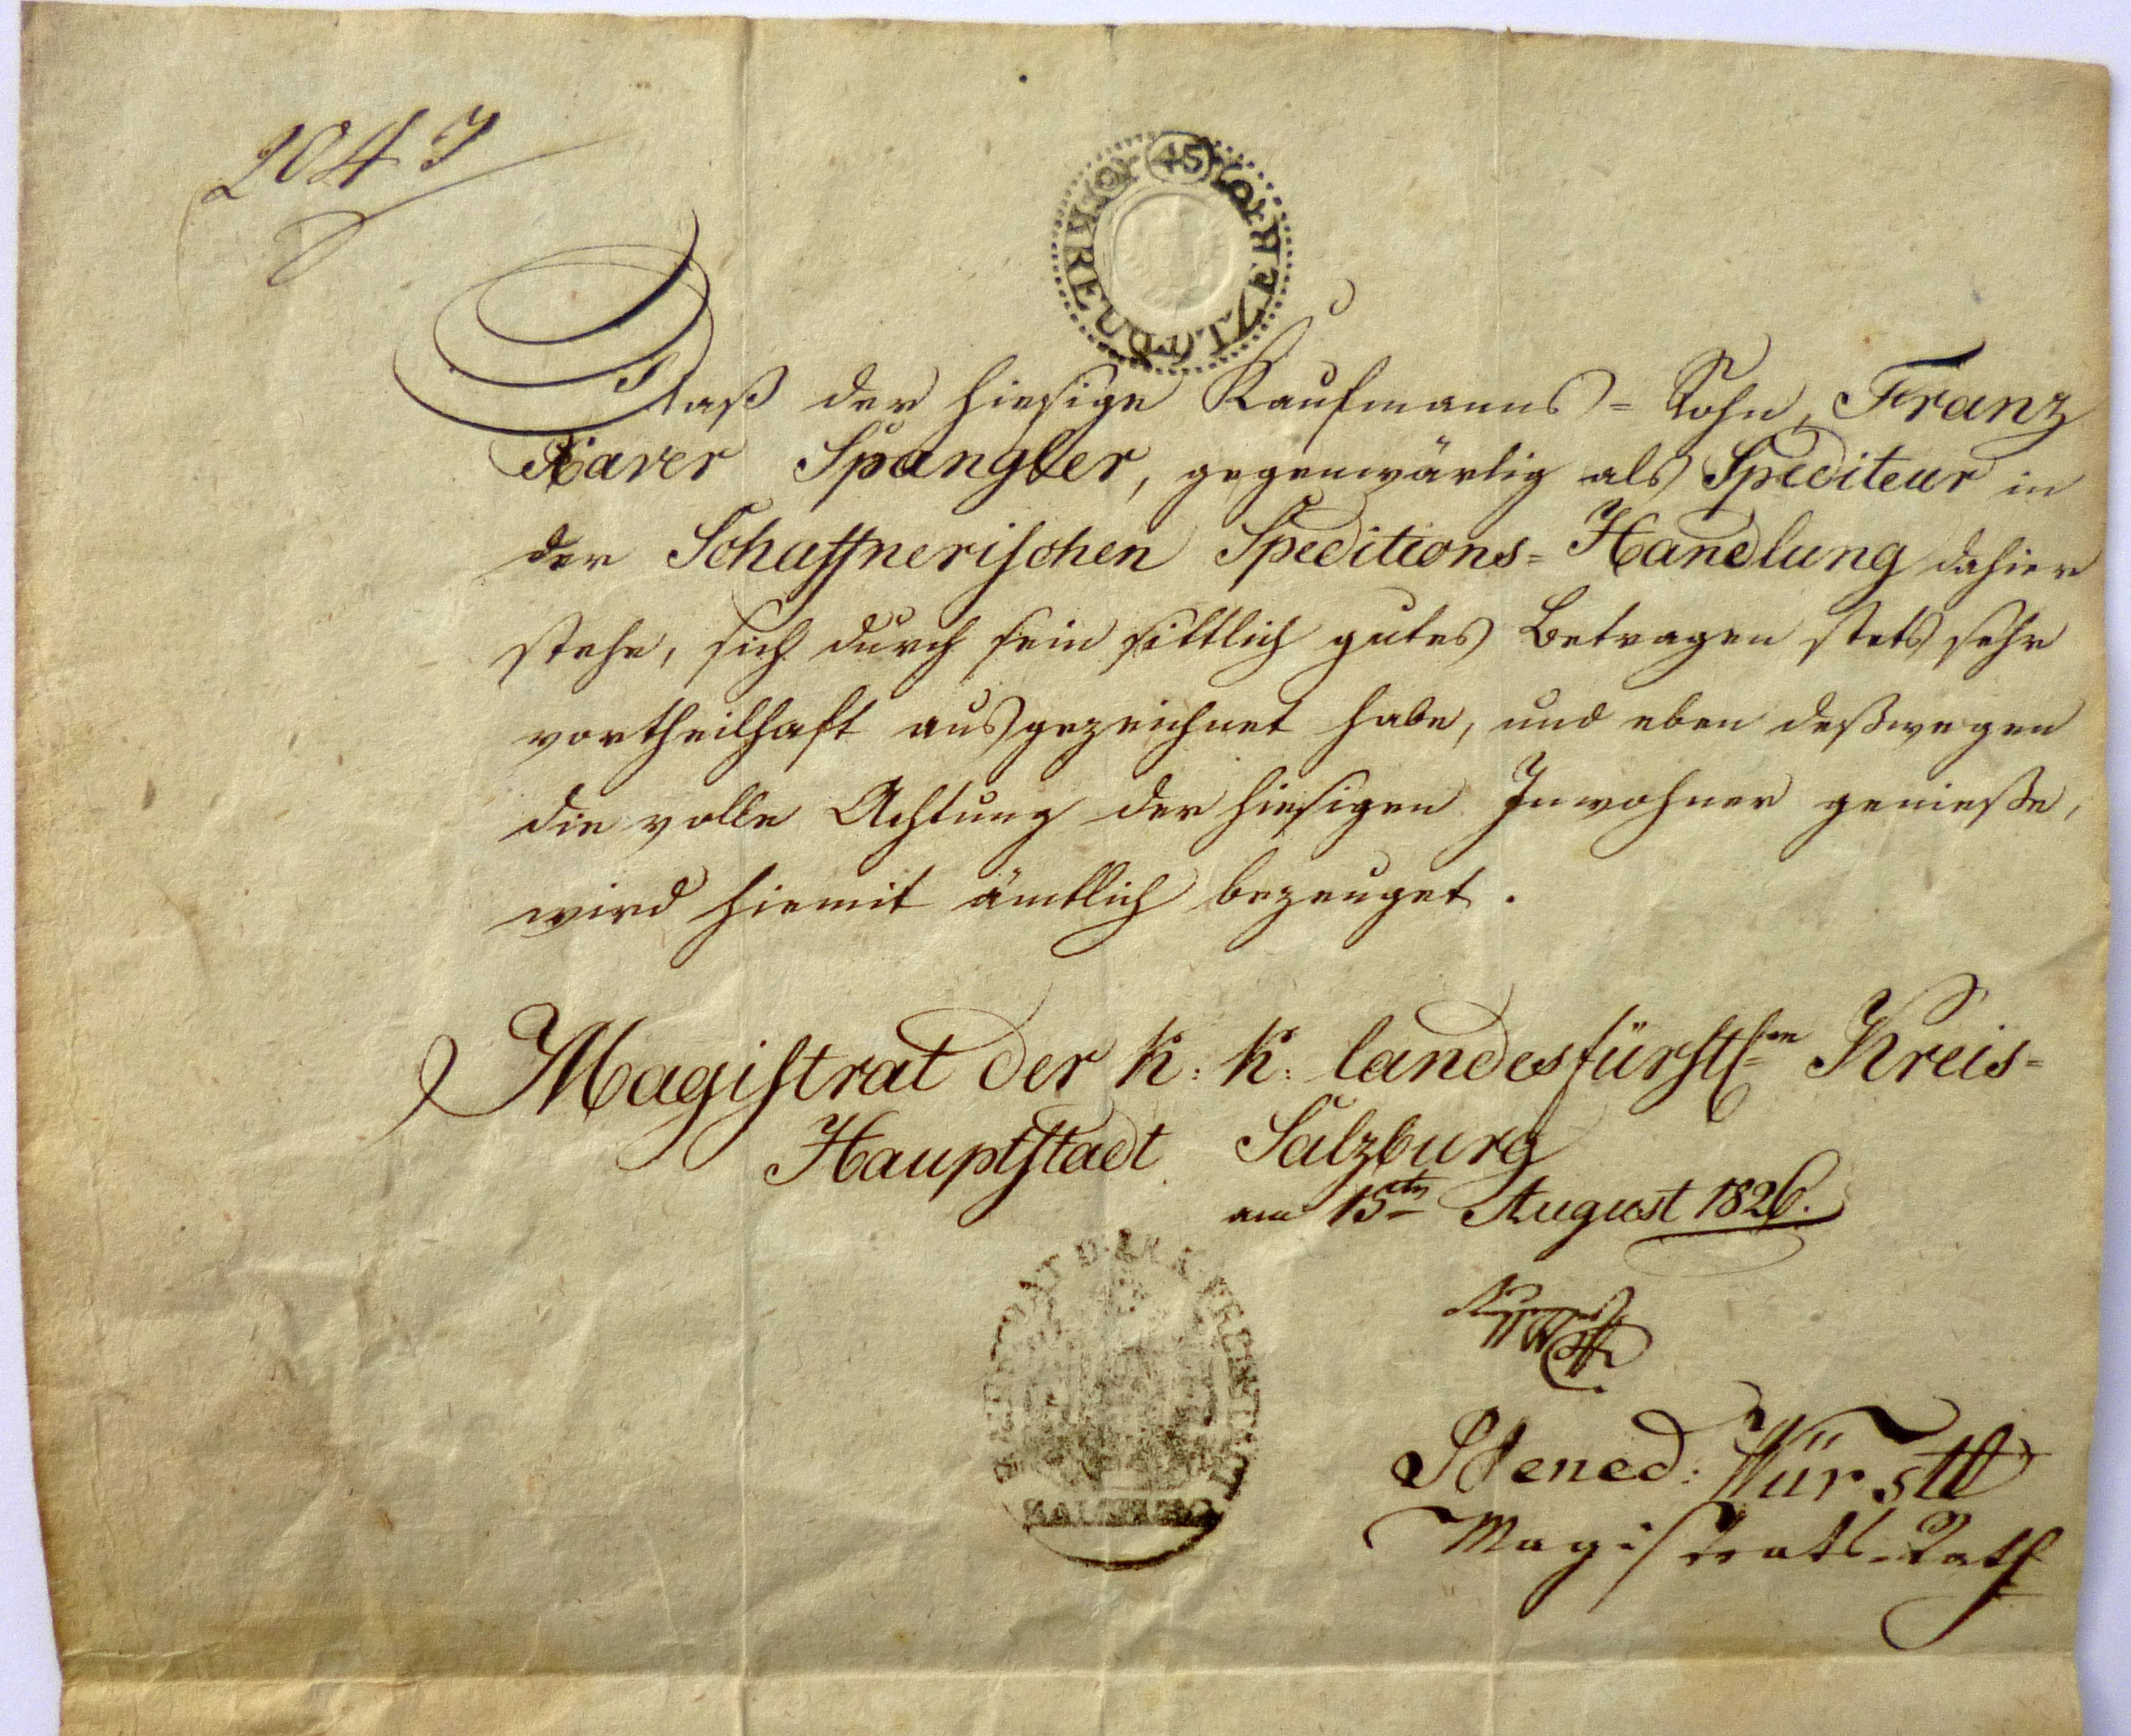 45
DREI KR DLITZER
Daß der hiesige Kaufmanns= Sohn, Franz
Xaver Spängler, gegenwärtig als Spediteur in
der Schaffnerischen Speditions=Handlung dahier
stehe, sich durch sein sittlich gutes Betragen stets sehr
vortheilhaft ausgezeichnet habe, und eben deßwegen
die volle Achtung der hiesigen Inwohner genieße,
wird hiemit ämtlich bezeuget.
Magistrat der k: k: landesfürstlen Kreis=
Hauptstadt Salzburg
am 15tn August 1826.
SALZBURG
Bened: Pürstl
Magistrats-Rath